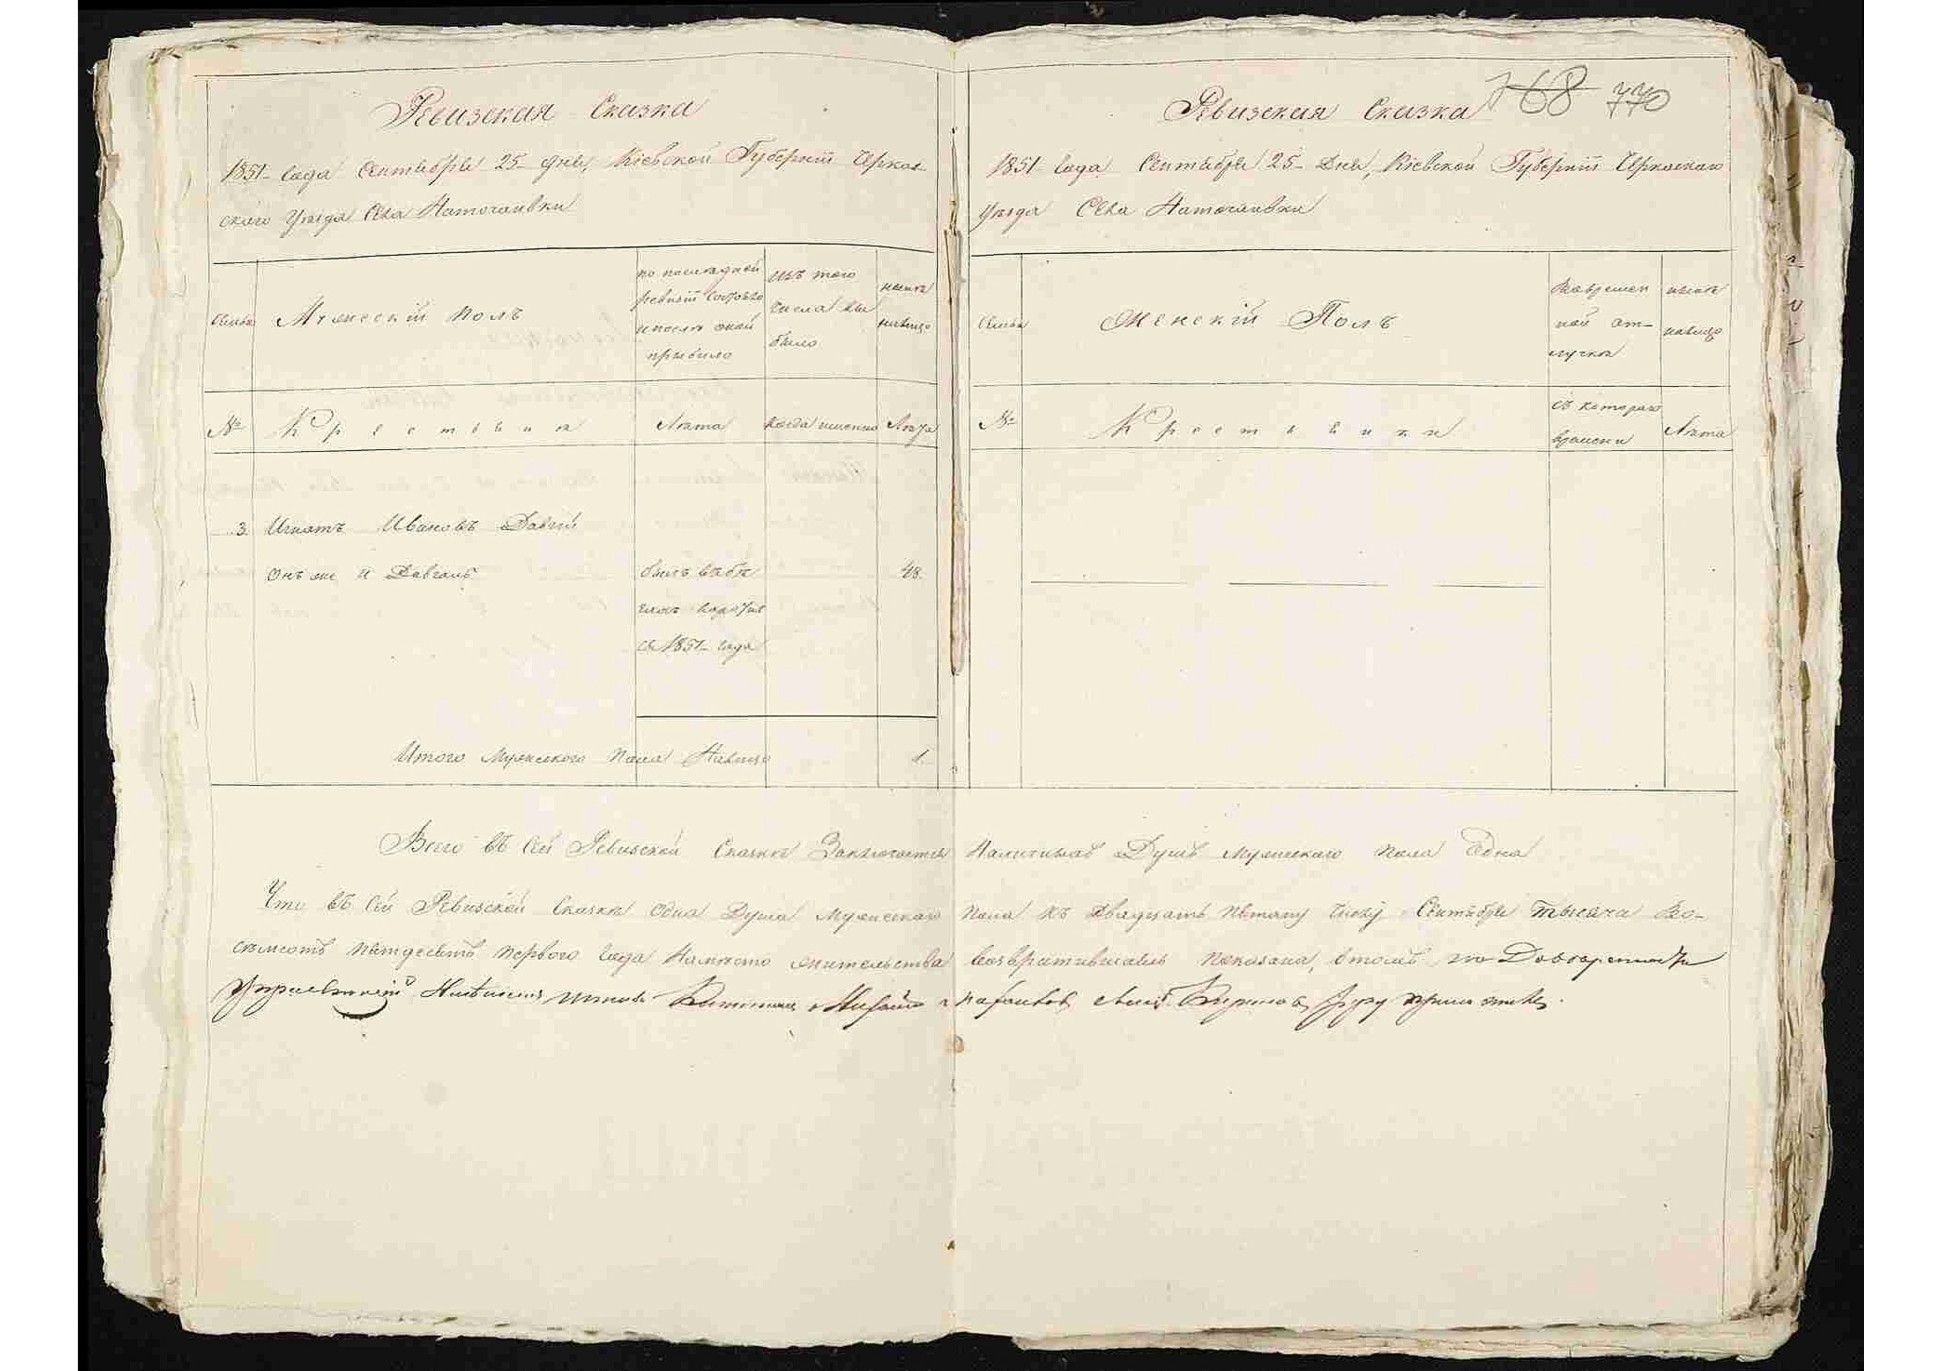 Ревизская Сказка
1851 года Сентября 25 дня, Кіевской Губерніи Черкас-
скаго Уѣзда Села Матогаивки
Семьи
Мужескій полъ
по последней
ревизіи состояло
и после оной
прибыло
Изъ того
числа вы
было
ныне
налицо
№
Крестьяне
Лѣта
когда именно
Лѣта
3. Игнатъ Ивановъ Давгій
Онъ же и Давгаль
былъ въ бѣ
гахъ
съ 1851 года
48.
Итого Мужескаго пола Налицо 1.
768 770
Ревизская Сказка
1851 года Сентября 25 дня, Кіевской Губерніи Черкаскаго
Уѣзда Села Матогаивки
Семьи
Женскій Полъ
Во времен
ной от-
лучкѣ
ныне
налицо
№
Крестьянки
съ котораго
времени
Лѣта
Всего въ сей Ревизской Сказкѣ Заключается Наличныхъ Душъ мужескаго пола Одна
Что въ сей Ревизской Сказкѣ одна Душа мужескаго пола къ двадцать пятому числу Сентября тысяча во-
семьсотъ пятдесятъ перваго года На мѣсто жительства возвратившаяся показана, в томъ по Довѣренности
Управляющій руку приложилъ